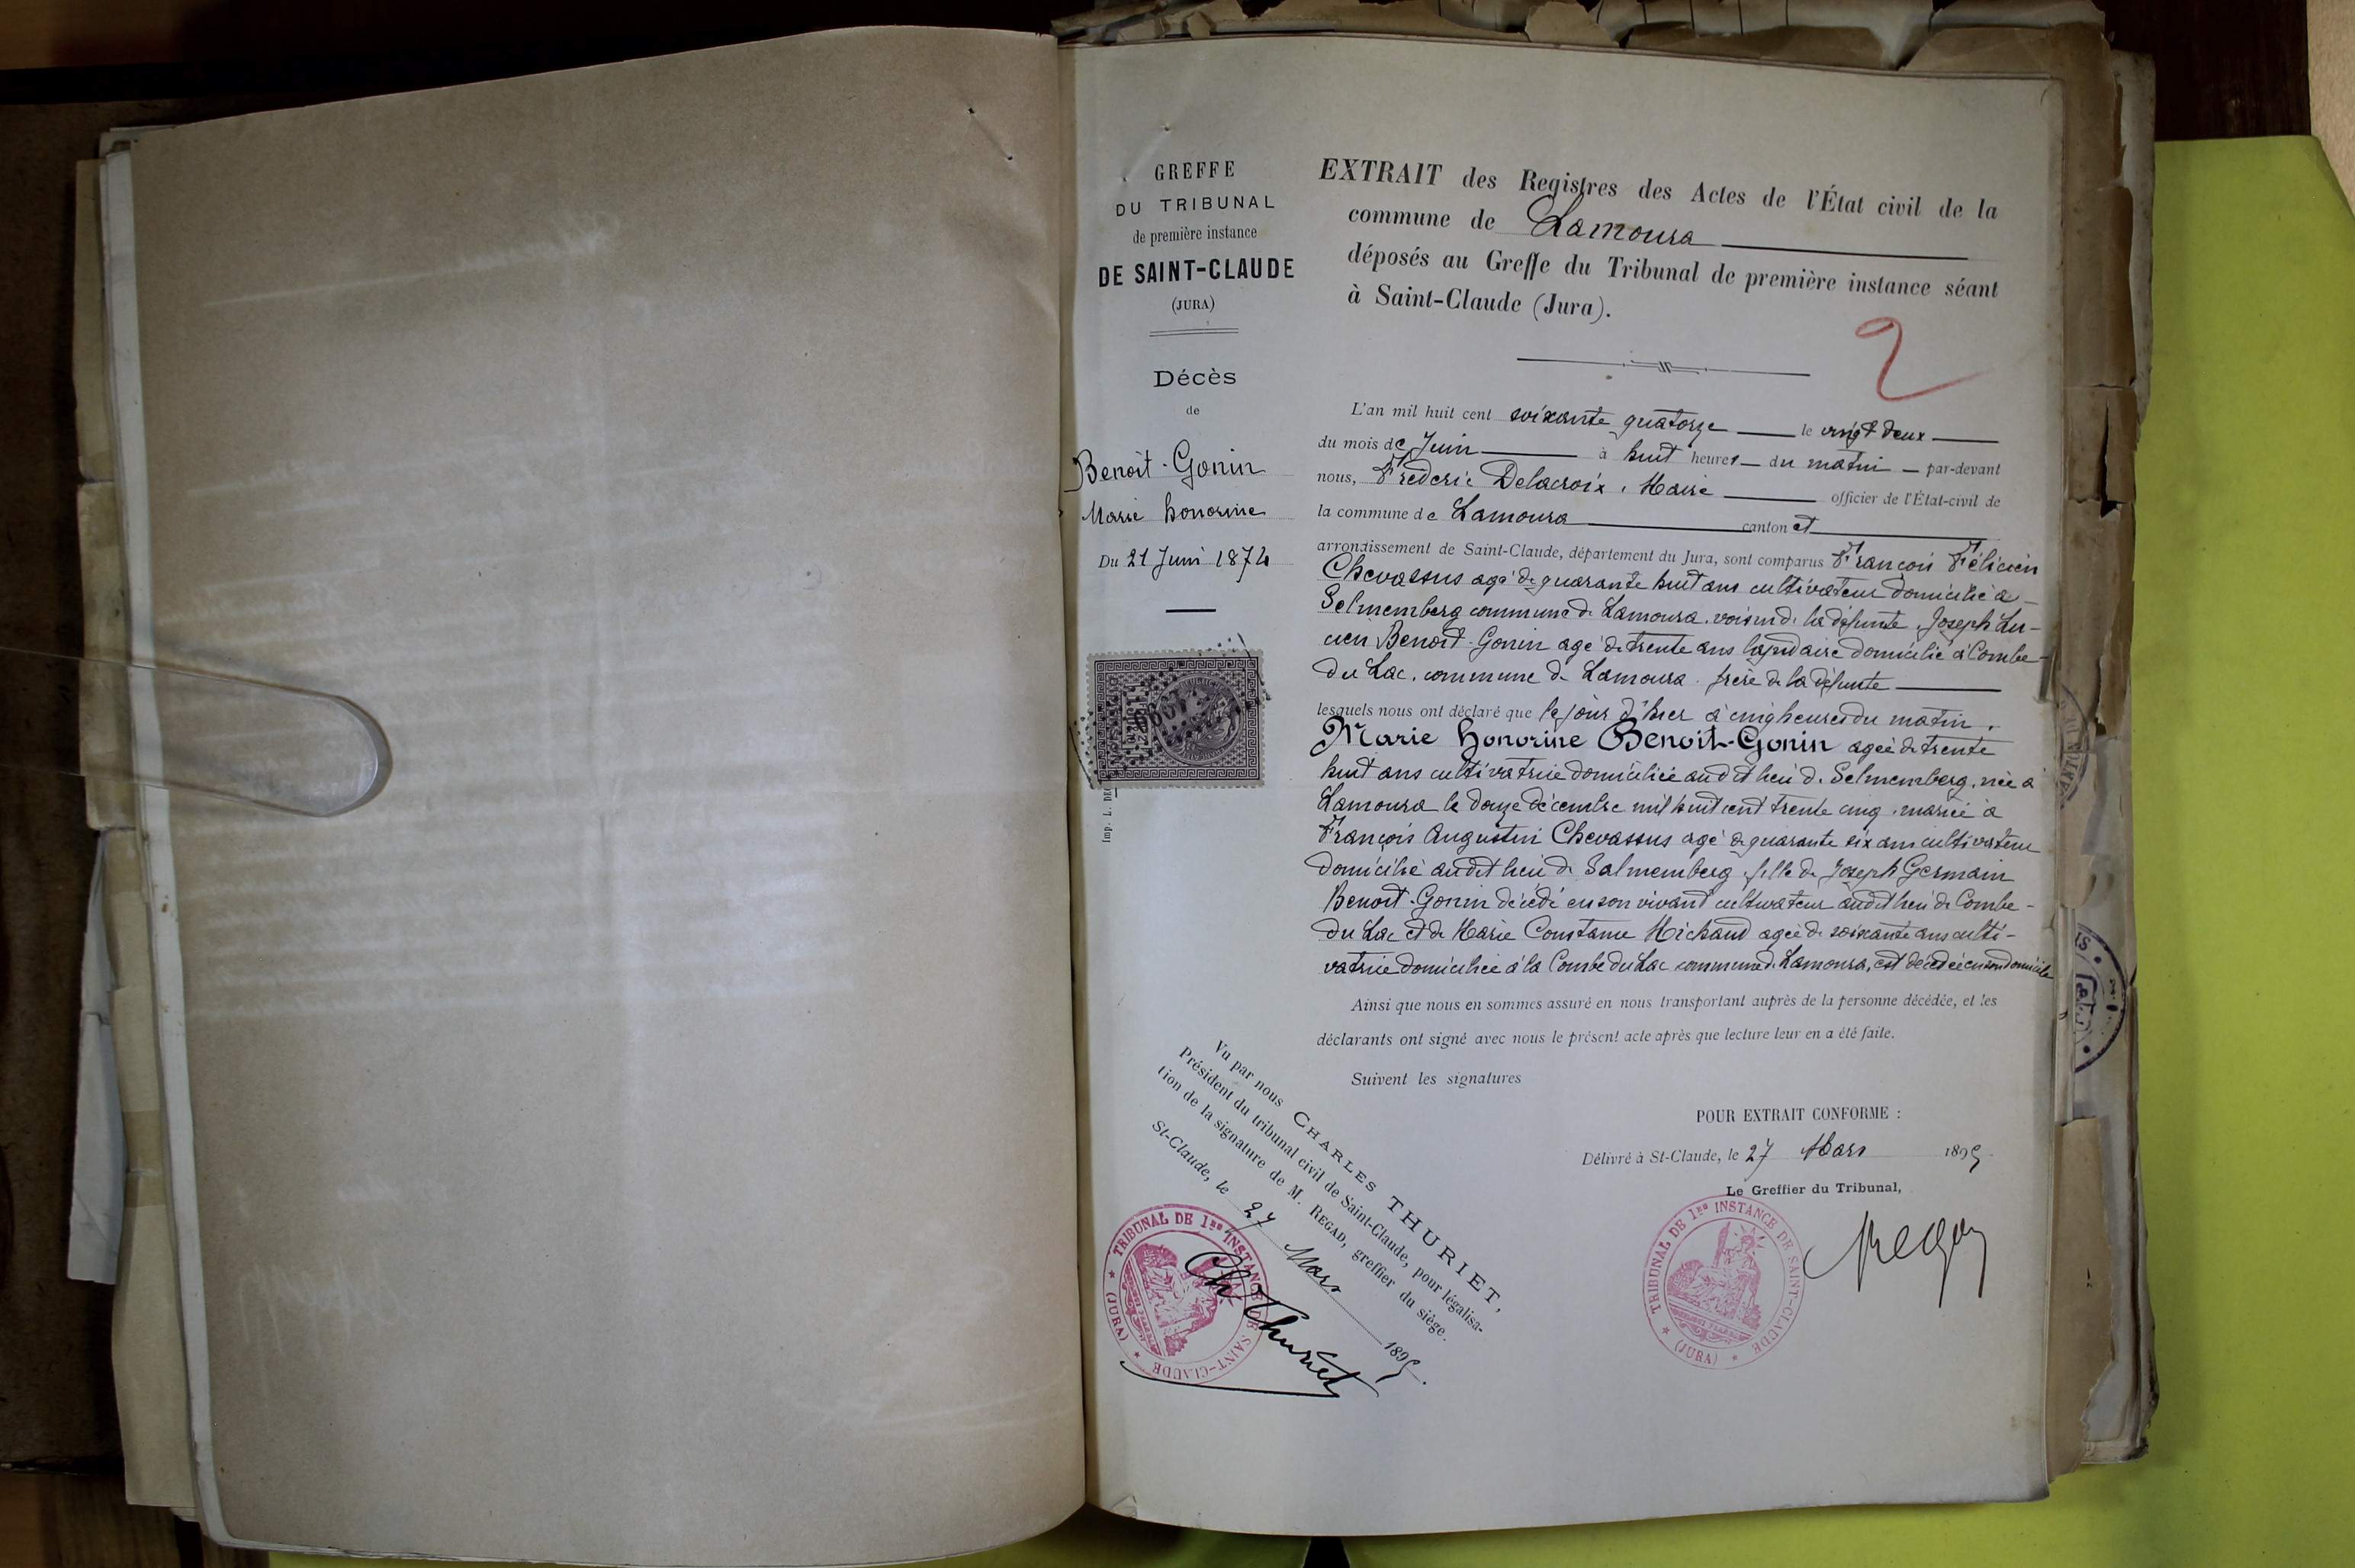 GREFFE
DU TRIBUNAL
de première instance
DE SAINT-CLAUDE
(JURA)
Décès
de
Benoit-Gonin
Marie honorine
Du 21 Juin 1874
Imp. L.
EXTRAIT des Registres des Actes de l'État civil de la
commune de Lamoura
déposés au Greffe du Tribunal de première instance séant
à Saint-Claude (Jura).
2
L'an mil huit cent soixante quatorze le vingt deux
du mois de Juin à huit heures du matin par-devant
nous, Frederic Delacroix, Maire officier de l'État-civil de
la commune de Lamoura canton et
arrondissement de Saint-Claude, département du Jura, sont comparus François Félicien
Chevassus agé de quarante huit ans cultivateur domicilié à
Selmemberg commune de Lamoura, voisin de la défunte, Joseph Lu-
cien Benoit-Gonin agé de trente ans lapidaire domicilié à Combe-
du Lac, commune de Lamoura. frère de la défunte
lesquels nous ont déclaré que le jour d'hier à cinq heures du matin,
Marie honorine Benoit-Gonin agée de trente
huit ans cultivatrice domiciliée audit lieu de Selmemberg, née à
Lamoura le douze décembre mil huit cent trente cinq, mariée à
François Augustin Chevassus agé de quarante six ans cultivateur
domicilié audit lieu de Salmemberg, fille de Joseph Germain
Benoit-Gonin décédé en son vivant cultivateur audit lieu de Combe-
du Lac et de Marie Constance Michaud agée de soixante ans culti-
vatrice domiciliée à la Combe du Lac commune de Lamoura, est décédée en son domicile
Ainsi que nous en sommes assuré en nous transportant auprès de la personne décédée, et les
déclarants ont signé avec nous le présent acte après que lecture leur en a été faite.
Suivent les signatures
POUR EXTRAIT CONFORME :
Délivré à St-Claude, le 27 Mars 1895
Le Greffier du Tribunal,
Regad
TRIBUNAL DE 1re INSTANCE DE SAINT-CLAUDE
(JURA)
Vu par nous CHARLES THURIET,
Président du tribunal civil de Saint-Claude, pour légalisa-
tion de la signature de M. REGAD, greffier du siège.
St-Claude, le 27 Mars 1895.
TRIBUNAL DE 1re INSTANCE DE SAINT-CLAUDE
(JURA)
Ch Thuriet